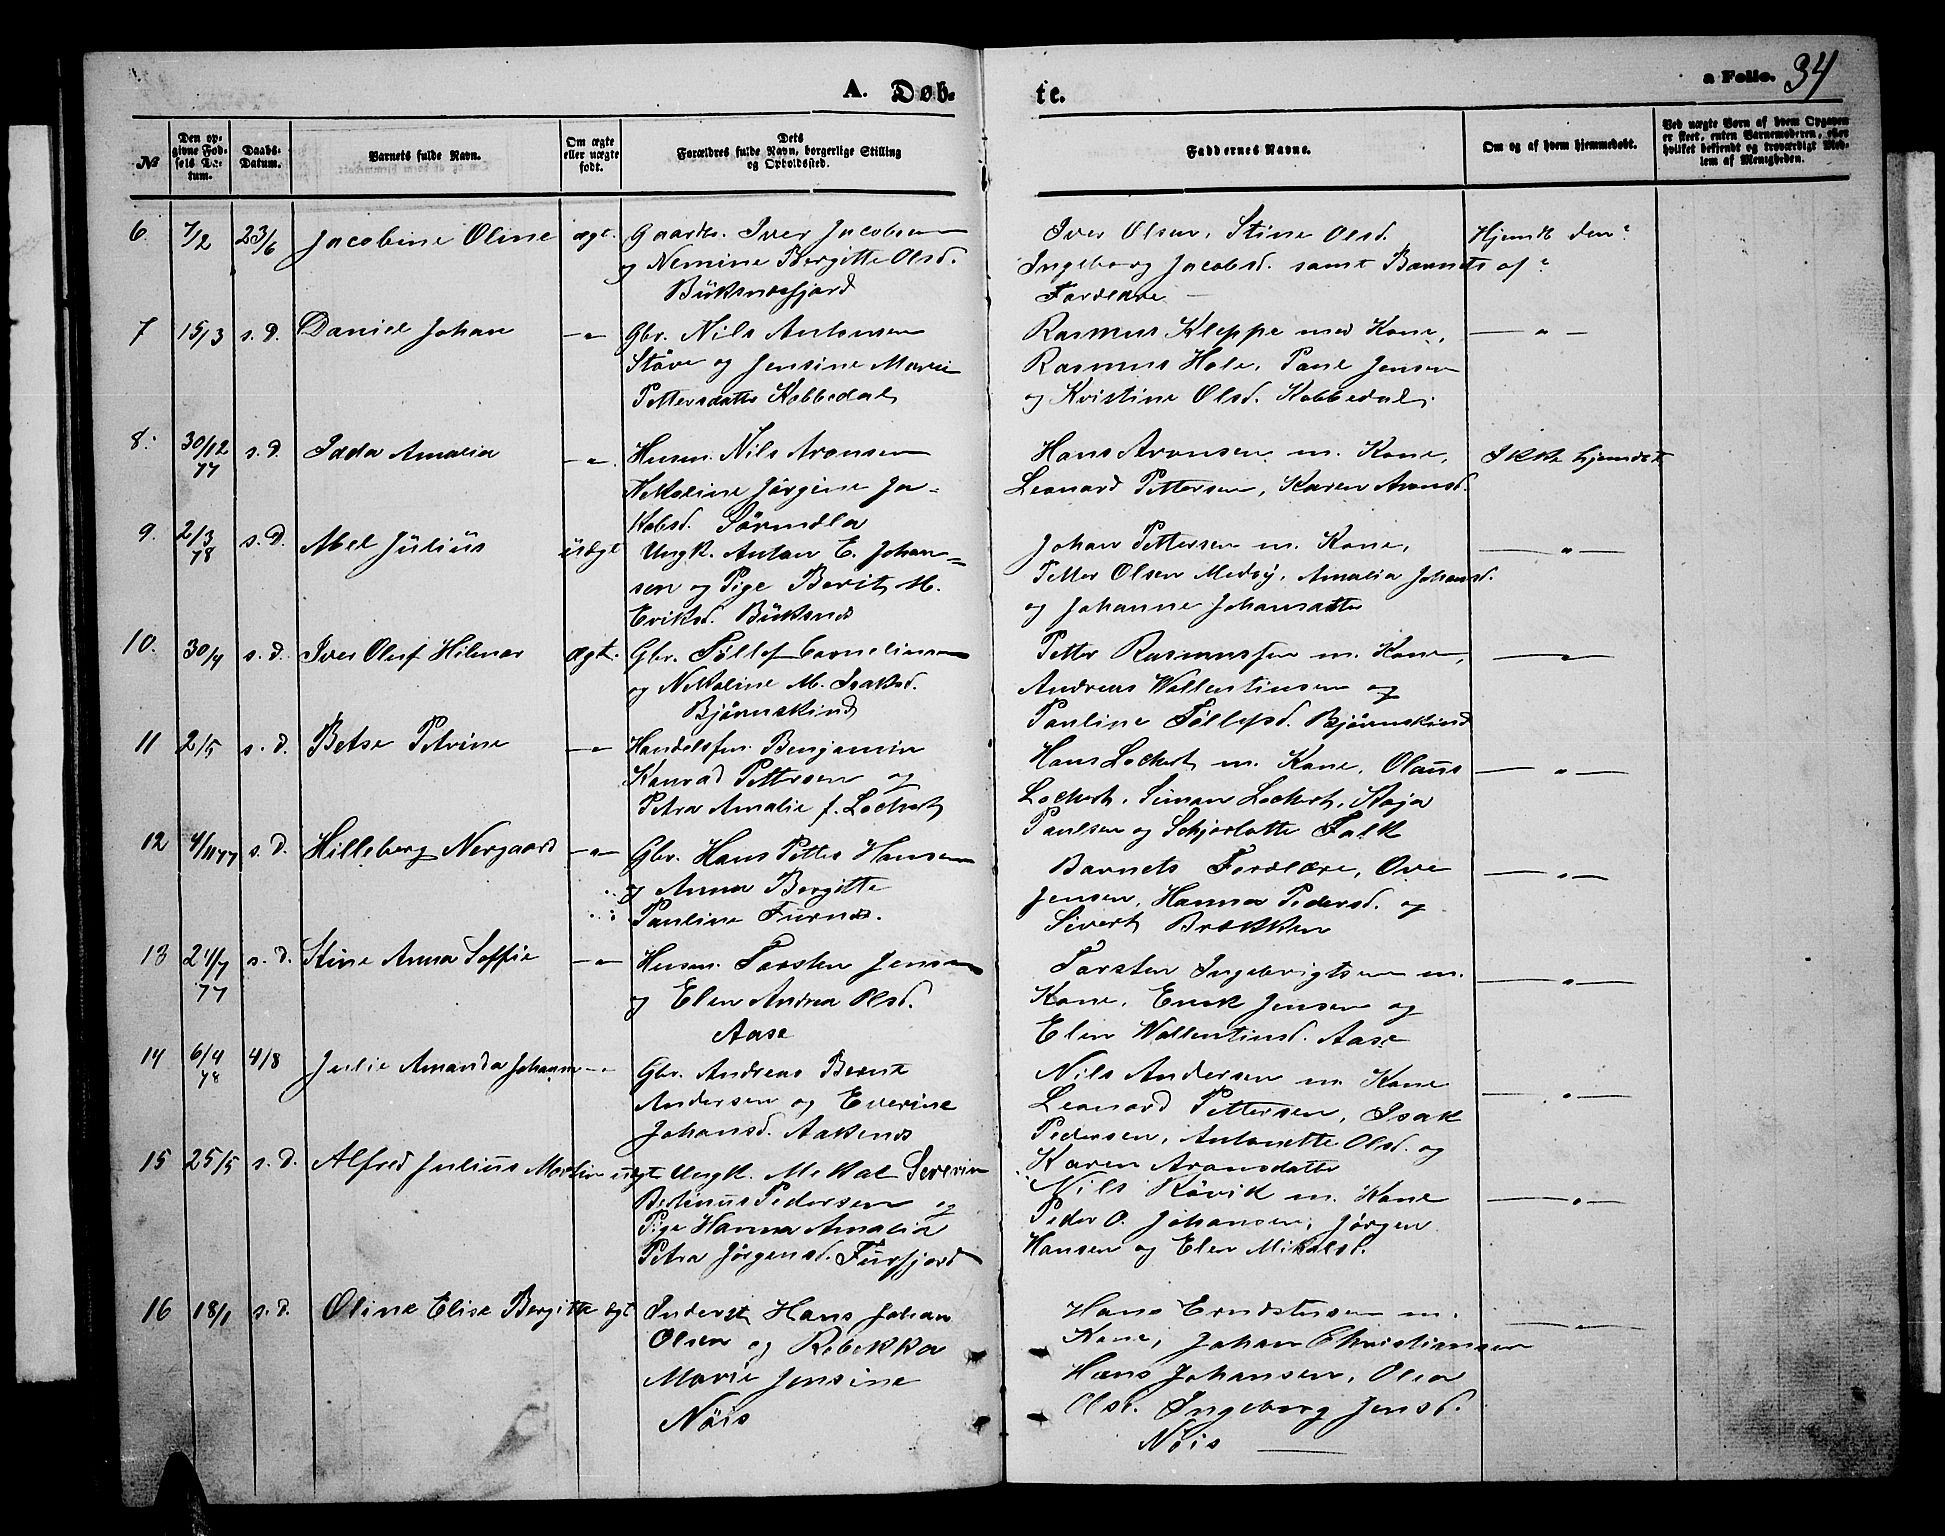 A. Døb-
te.
a Folio. 34
№
Den op-
givne Fød-
sels Da-
tum.
Daabs-
Datum.
Barnets fulde Navn.
Om ægte
eller uægte
født.
Dets
Forældres fulde Navn, borgerlige Stilling
og Opholdssted.
Faddernes Navne.
Om og af hvem hjemmedøbt.
Ved uægte Børn af hvem Opgaven
er skeet, enten Barnemoderen, eller
hvilket bekjendt og troværdigt Med-
lem af Menigheden.
6. 7/2 23/6 Jacobine Oline ægt. Gaardb. Iver Jacobsen
og Nemine Bergitte Olsd.
Büksnæsfjord
Iver Olsen, Stine Olsd. Hjemdt
Ingeborg Jacobsd. samt Barnets af
Forældre —
7 15/3 s. d. Daniel Johan — " — Gbr. Nils Antonsen
Støve og Jensine Marie
Pettersdatter Kobbedal
Rasmus Kleppe med Kone, — " —
Rasmus Hole, Paul Jensen
og Kristine Olsd. Kobbedal.
8. 30/12 77 s. d. Idda Amalia — " — Husm. Nils Aronsen
Nikoline Jørgine Ja-
kobsd. Sörmela
Hans Aronsen m. Kone, Ikke hjemdøbt
Leonard Pettersen, Karen Aronsd.
9. 2/3 78 s. d. Abel Julius uægt Ungk. Antan E. Johan-
sen og Pige Berit M.
Eriksd. Büksnæs
Johan Pettersen m. Kone, — " —
Petter Olsen Medby, Amalia Johansd.
og Johanne Johansdatter
10. 30/4 s. d. Iver Oluf Hilmar ægt. Gbr. Tøllef Corneliussen
og Nikoline M. Isaksd.
Bjørnskind
Petter Rasmussen m. Kone, — " —
Andreas Wallentinsen og
Pauline Tøllefsd. Bjørnskind
11 2/5 s. d. Betse Petrine — " — Handelsfm. Benjamin
Konrad Pettersen og
Petra Amalie f. Lockert
Hans Lockert m. Kone, Olaus — " —
Lockert, Simon Lockert, Kaja
Paulsen og Schjarlotte Falk
12 4/11 77 s. d. Hilleborg Nergaard — " — Gbr. Hans Petter Hansen
og Anna Bergitte
Pauline Furnæs.
Barnets Forældre, Ove — " —
Jensen, Hanna Pedersd. og
Sivert Brækken
13 24/7 77 s. d. Stine Anna Soffie — " — Husm. Torsten Jensen
og Elen Andrea Olsd.
Aase
Torsten Ingebrigtsen m. — " —
Kone, Enok Jensen og
Elen Wallentinsd. Aase
14 6/4 78 4/8 Julie Amanda Johanne — " — Gbr. Andreas Bernt
Andersen og Everine
Johansd. Aakenæs
Nils Andersen m. Kone — " —
Leonard Pettersen, Isak
Pedersen, Antonette Olsd. og
Karen Aronsdatter
15 25/5 s. d. Alfred Julius Martin uægt Ungk. Mekal Severin
Bertinus Pedersen og
Pige Hanna Amalia
Petra Jørgensd. Furfjord
Nils Røvik m. Kone — " —
Peder O. Johansen, Jørgen
Hansen og Elen Mikalsd.
16 18/1 s. d. Oline Elise Bergitte ægt Inderst Hans Johan
Olsen og Rebekka
Marie Jensine
Nöis
Hans Erndstusen m. — " —
Kone, Johan Christiansen
Hans Johansen, Olea
Olsd. Ingeborg Jensd.
Nöis —